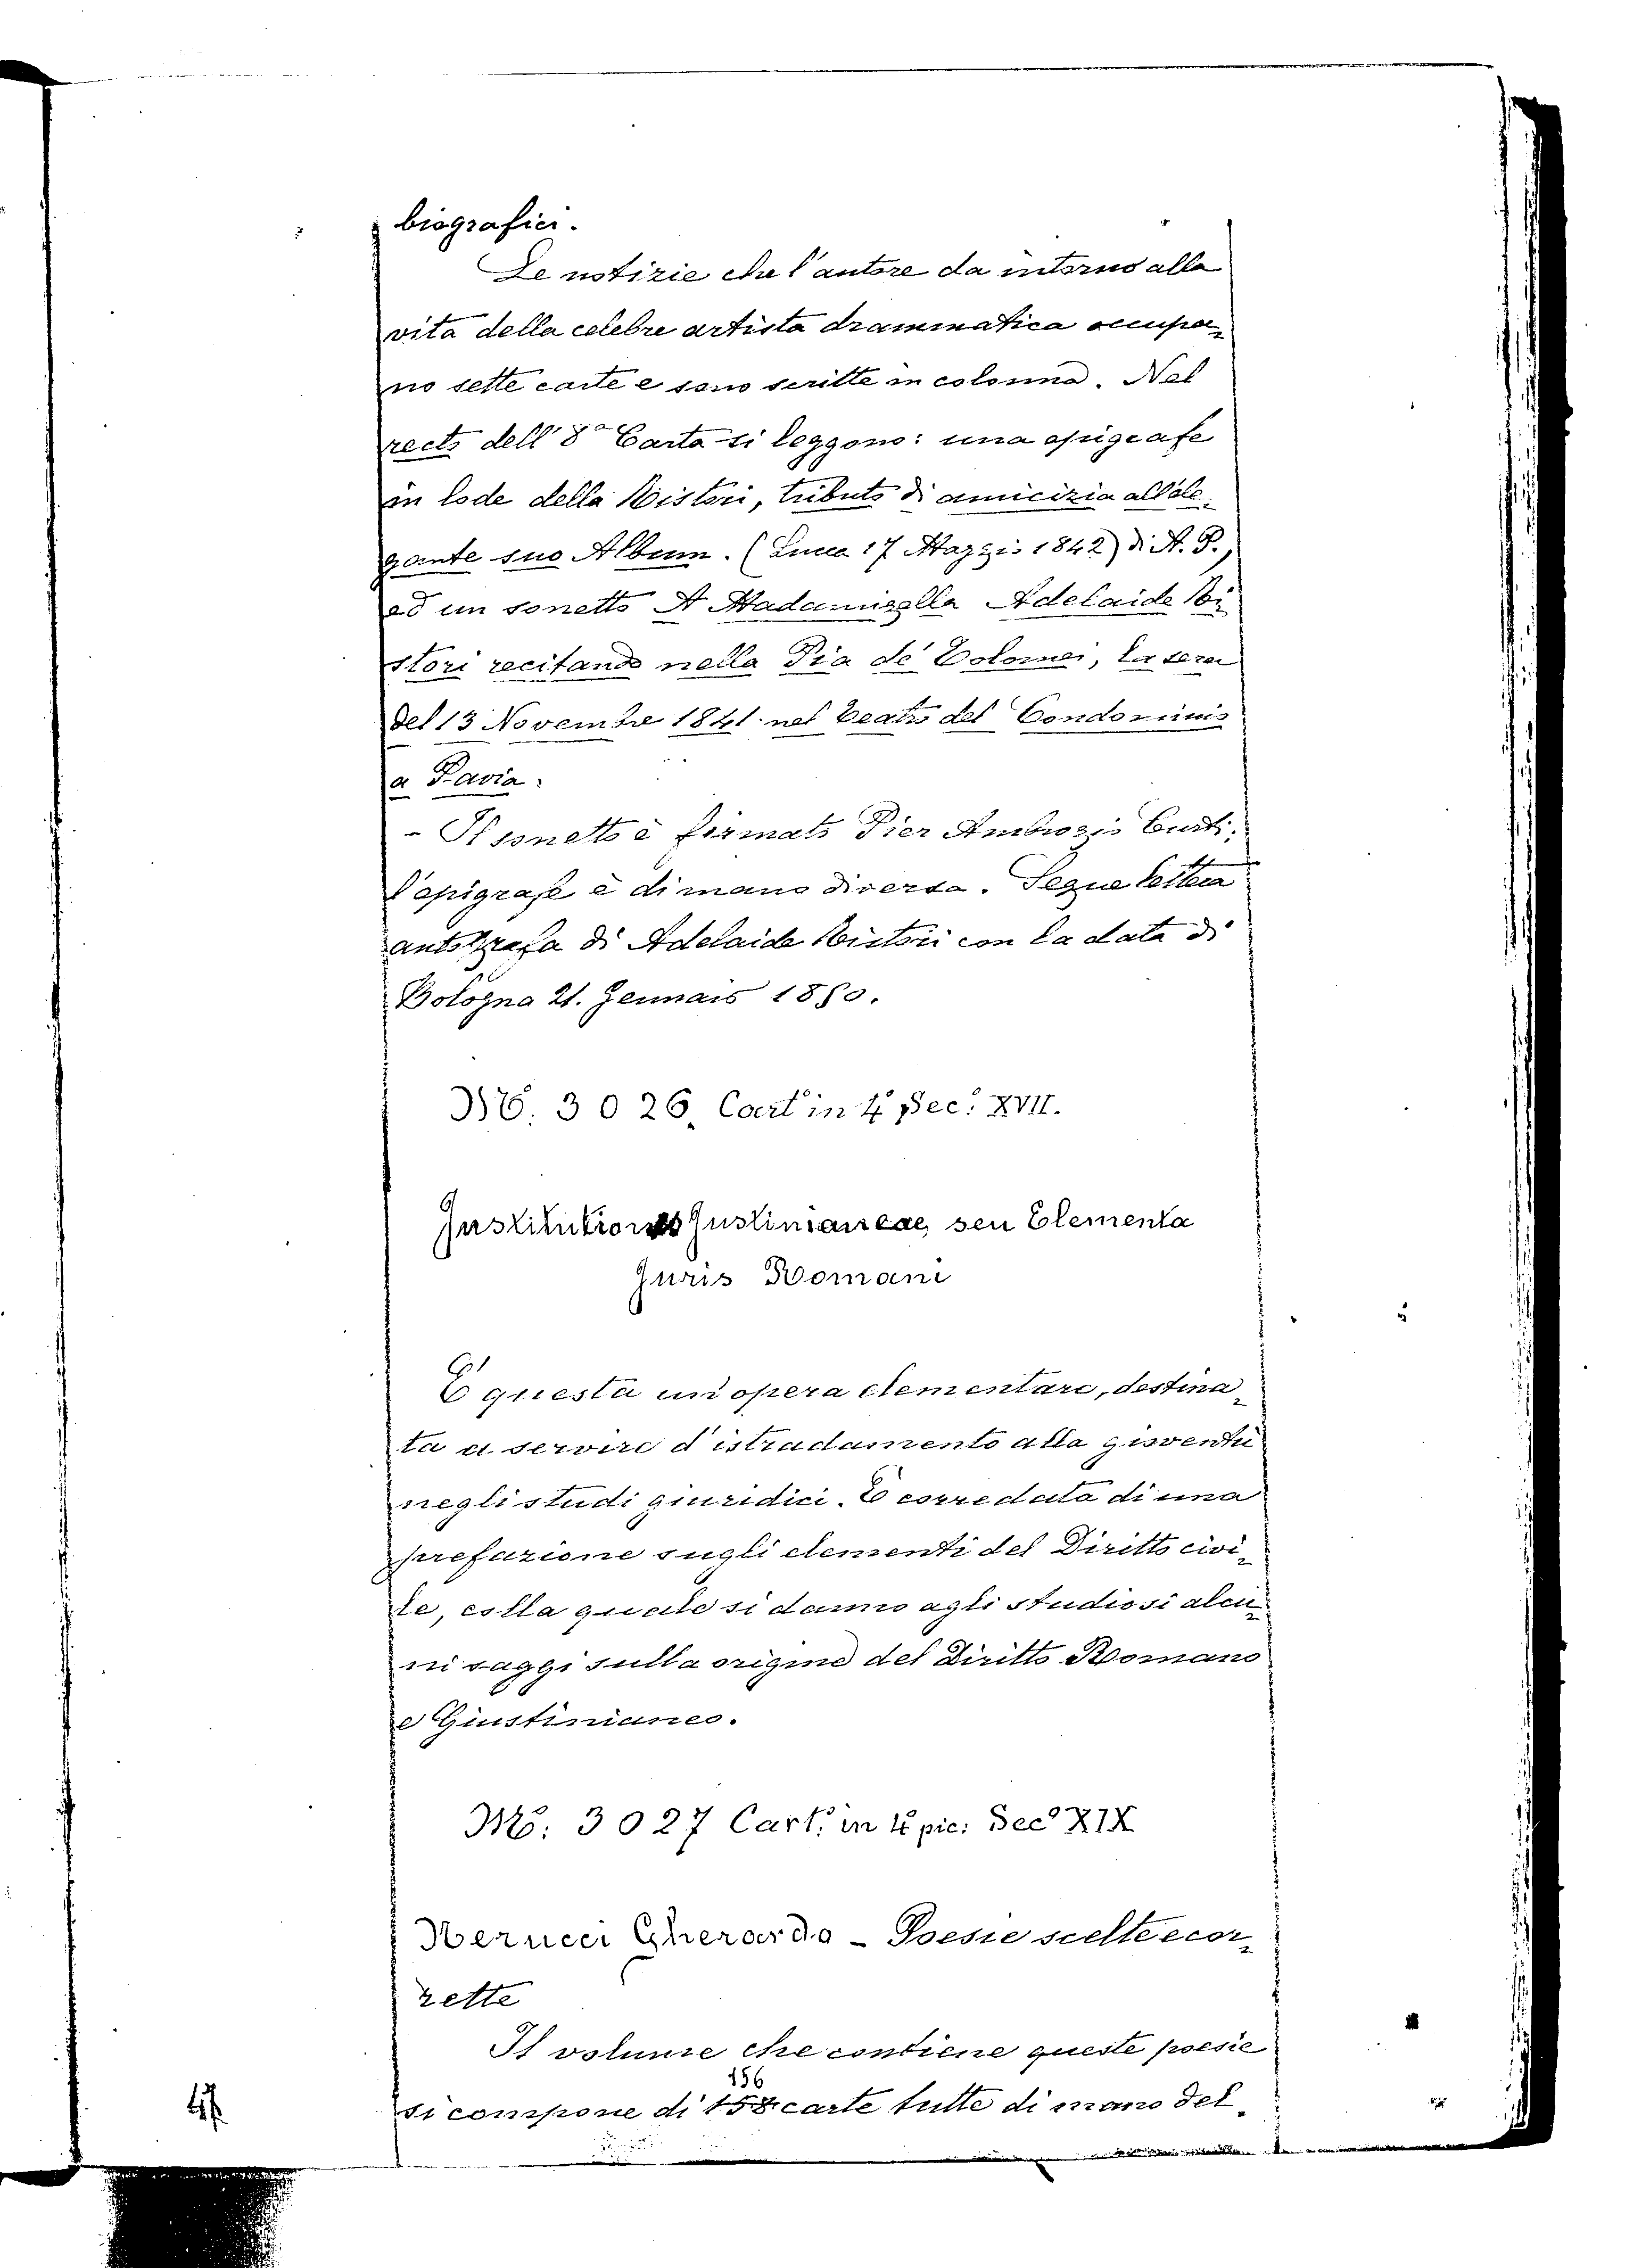 biografici.
Le notizie che l'autore da intorno alla
vita della celebre artista drammatica occupa-
no sette carte e sono scritte in colonna. Nel
recto dell' 8ª Carta si leggono: una epigrafe
in lode della Ristori, tributo di amicizia all'ele-
gante suo Album. (Lucca 17 Maggio 1842) di A. P.,
ed un sonetto A Madamigella Adelaide Ri-
stori recitando nella Pia de' Tolomei, la sera
del 13 Novembre 1841 nel teatro del Condominio
a Pavia.
- Il sonetto è firmato Pier Ambrogio Curti;
l'epigrafe è di mano diversa. Segue lettera
autografa di Adelaide Ristori con la data di
Bologna 21. Gennaio 1850.
Mß. 3026. Cart in 4º Sec: XVII.
Institutiones Justinianeae, seu Elementa
Juris Romani
È questa un'opera elementare, destina-
ta a servire d'istradamento alla gioventù
negli studi giuridici. È corredata di una
prefazione sugli elementi del Diritto civi-
le, colla quale si danno agli studiosi alcu-
ni saggi sulla origine del Diritto Romano
e Giustinianeo.
Mß: 3027 Cart: in 4º pic: Secº XIX
Nerucci Gherardo - Poesie scelte e cor-
rette
Il volume che contiene queste poesie
156
si compone di 158 carte tutte di mano del-